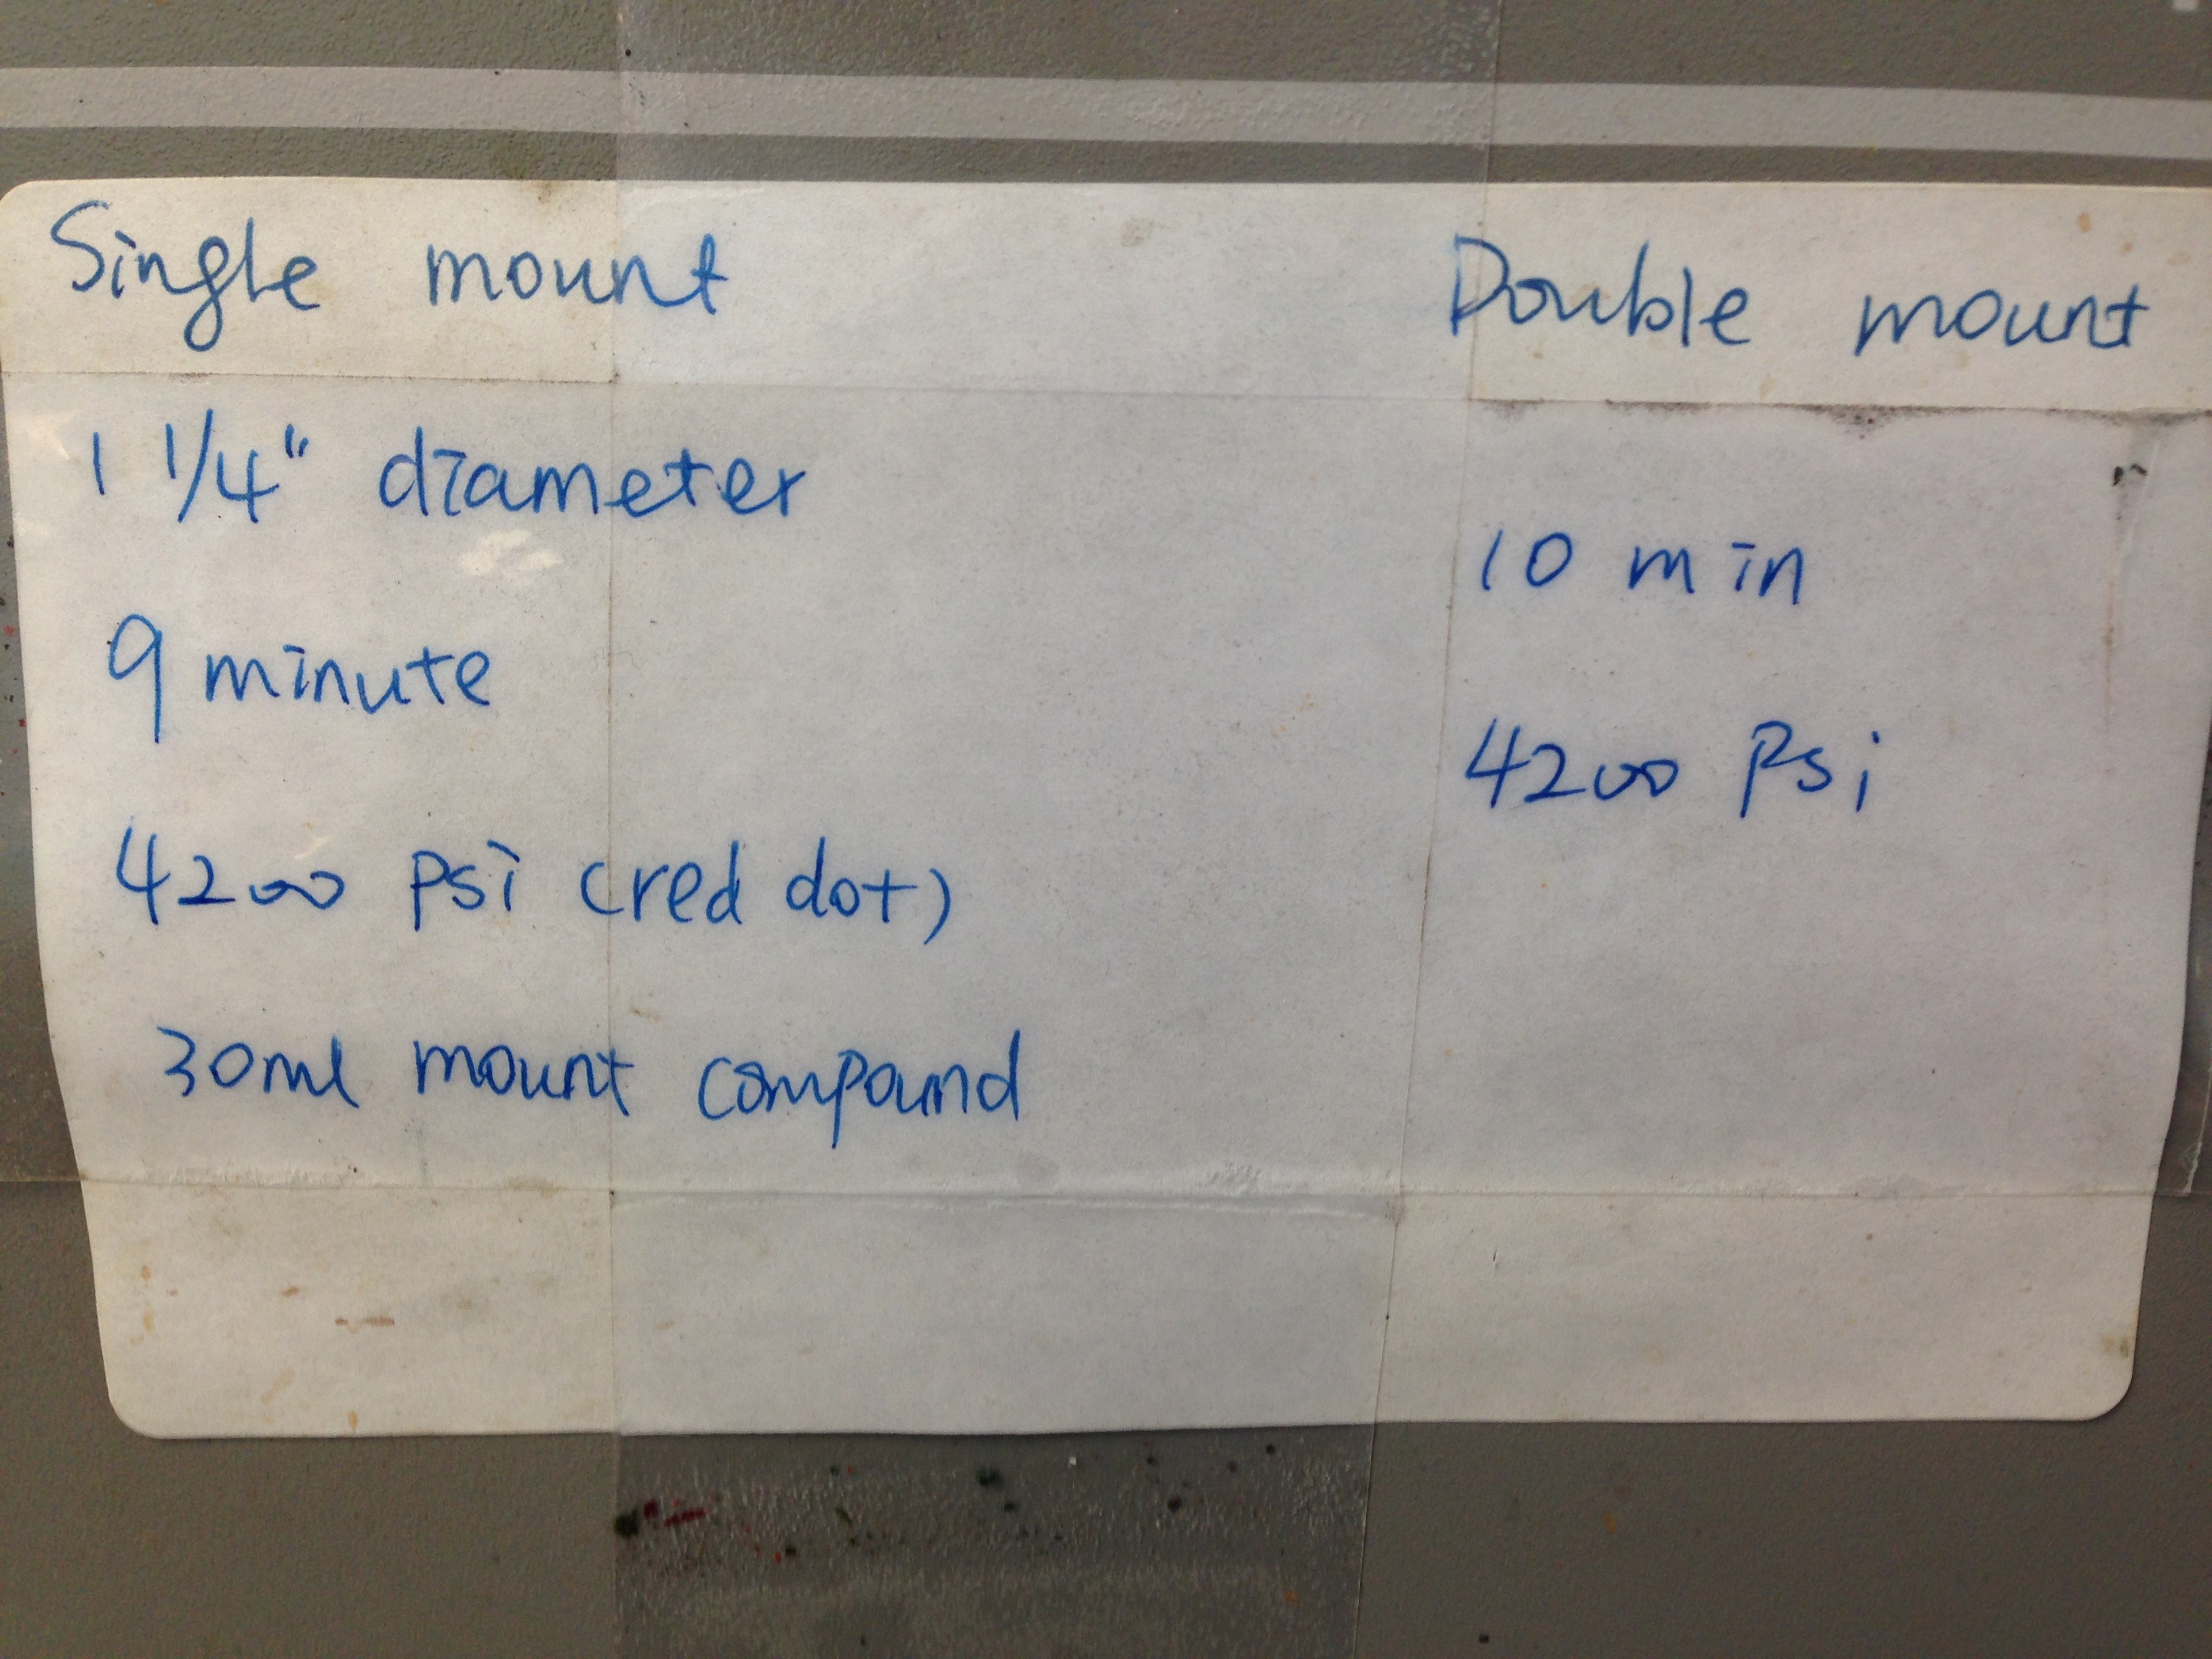 Single mount
1 1/4" diameter
9 minute
4200 psi (red dot)
30ml mount compound
Double mount
10 min
4200 Psi